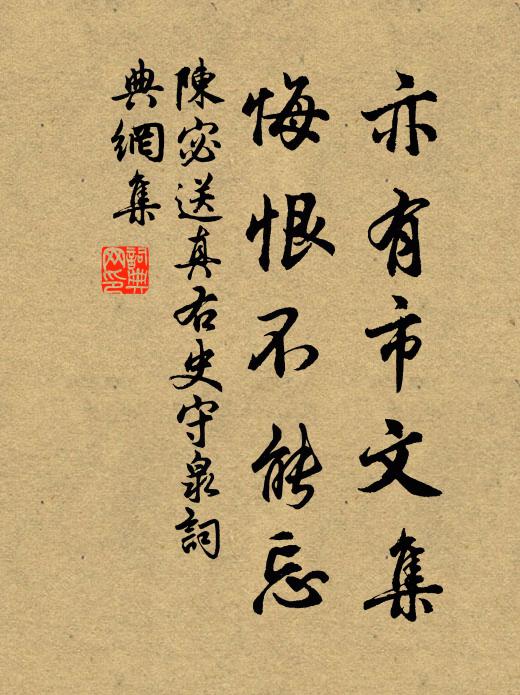 亦有市文集
悔恨不能忘
陳宓送真右史守泉詞
典網集
詞典網印